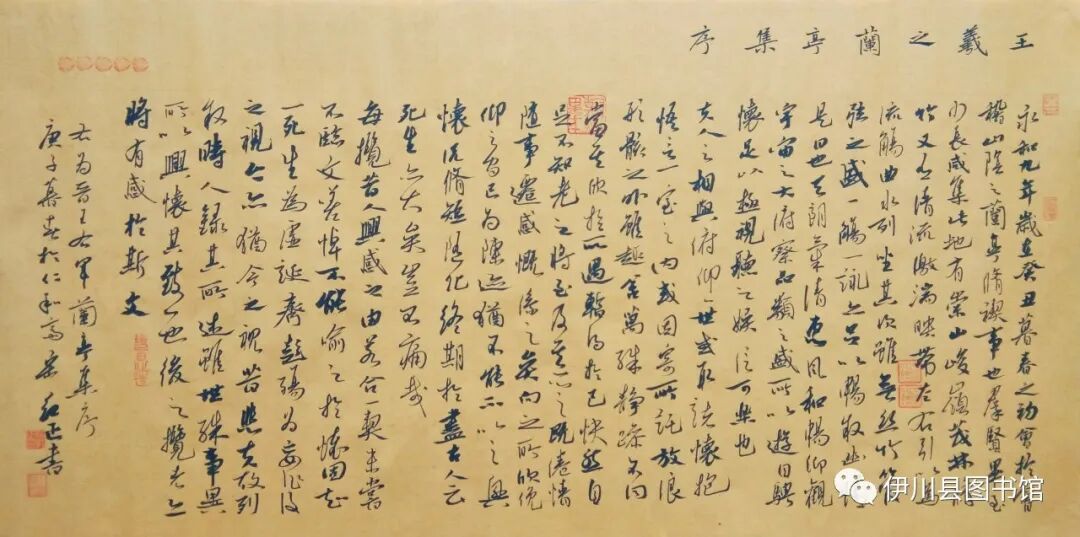 王羲之蘭亭集序
永和九年歲在癸丑暮春之初會於會
稽山陰之蘭亭脩禊事也羣賢畢至
少長咸集此地有崇山峻嶺茂林脩
竹又有清流激湍映帶左右引以為
流觴曲水列坐其次雖無絲竹管
弦之盛一觴一詠亦足以暢敘幽情
是日也天朗氣清惠風和暢仰觀
宇宙之大俯察品類之盛所以遊目騁
懷足以極視聽之娛信可樂也
夫人之相與俯仰一世或取諸懷抱
悟言一室之內或因寄所託放浪
形骸之外雖趣舍萬殊靜躁不同
當其欣於所遇暫得於己快然自
足不知老之將至及其所之既倦情
隨事遷感慨係之矣向之所欣俛
仰之間已為陳迹猶不能不以之興
懷況脩短隨化終期於盡古人云
死生亦大矣豈不痛哉
每攬昔人興感之由若合一契未嘗
不臨文嗟悼不能喻之於懷固知
一死生為虛誕齊彭殤為妄作後
之視今亦猶今之視昔悲夫故列
敘時人錄其所述雖世殊事異
所以興懷其致一也後之攬者亦
將有感於斯文
右為晉王右軍蘭亭集序
庚子春於仁和齋 正書
伊川县图书馆